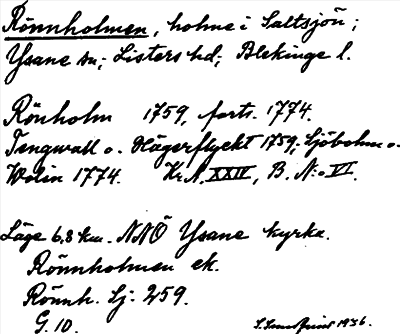 Rönnholmen, holme i Saltsjön;
Ysane sn; Listers hd; Blekinge l.
Rönholm 1759, forts. 1774.
Tengwall o. Hägerflyckt 1759, Sjöbohm o.
Wolin 1774. Kr. A. XXIV, B. N:o VI.
Läge 6,8 km. NNÖ Ysane kyrka.
Rönnholmen ek.
Rönnh. Sj. 259.
G. 10.
1936.